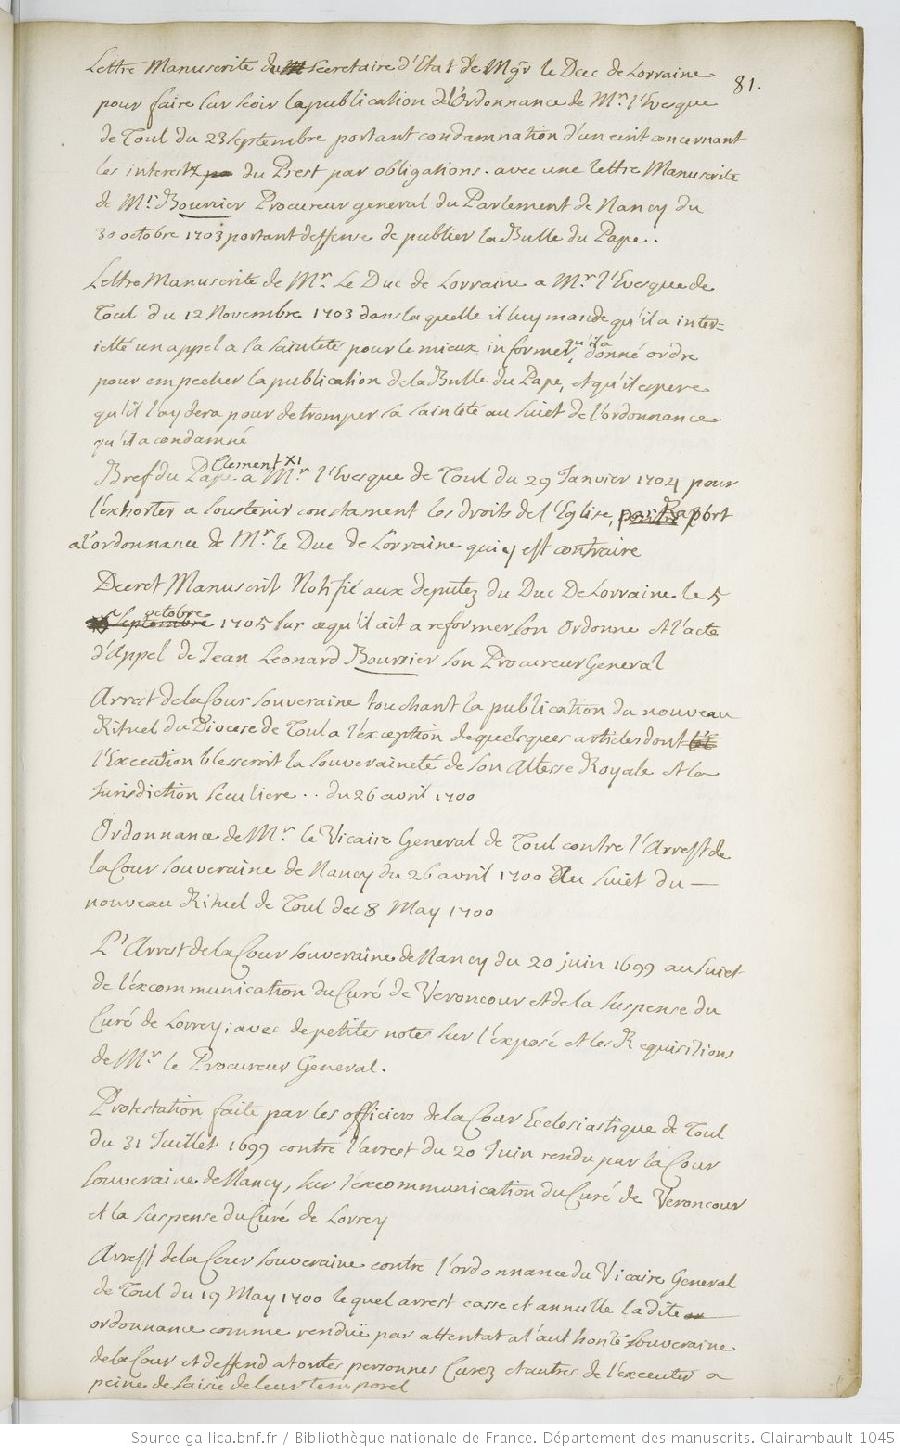 Lettre Manuscrite du secretaire d'Etat de Mgr le Duc de Lorraine
81.
pour faire surseoir la publication de l'Ordonnance de Mr. l'Evesque
de Toul du 23 septembre portant condamnation d'un ecrit concernant
les interestz du Prest par obligations. avec une lettre Manuscrite
de Mr. Bourcier Procureur general du Parlement de Nancy du
30 octobre 1703 portant deffense de publier la Bulle du Pape..
Lettre Manuscrite de Mr. Le Duc de Lorraine a Mr. l'Evesque de
Toul du 12 Novembre 1703 dans laquelle il luy mande qu'il a inter-
ietté un appel a sa sainteté pour le mieux informer, qu'il a donné ordre
pour empecher la publication de la Bulle du Pape, et qu'il espere
qu'il l'aydera pour detromper sa sainteté au suiet de l'ordonnance
qu'il a condamné
Bref du Pape Clement XI a Mr. l'Evesque de Toul du 29 Janvier 1704 pour
l'exhorter a soustenir constament les droits de l'Eglise, par Raport
a l'ordonnance de Mr. le Duc de Lorraine qui y est contraire
Decret Manuscrit Notifié aux deputez du Duc De Lorraine le 5
septembre octobre 1705 sur ce qu'il ait a reformer son Ordonne et l'acte
d'Appel de Jean Leonard Bourcier son Procureur General
Arrest de la Cour souveraine touchant la publication du nouveau
Rituel du Diocese de Toul a l'exception de quelques articles dont
l'Execution blesseroit la souveraineté de son Altesse Royale et la
Jurisdiction seculiere.. du 26 avril 1700
Ordonnance de Mr. le Vicaire General de Toul contre l'Arrest de
la Cour souveraine de Nancy du 26 avril 1700 Au suiet du —
nouveau Rituel de Toul du 8 May 1700
L'Arrest de la Cour souveraine de Nancy du 20 juin 1699 au suiet
de l'excommunication du Curé de Veroncour et de la suspense du
Curé de Lorrey; avec de petites notes sur l'exposé et les Requisitions
de Mr. le Procureur General.
Protestation faite par les officiers de la Cour Ecclesiastique de Toul
du 31 Juillet 1699 contre l'arrest du 20 Juin rendu par la Cour
souveraine de Nancy, sur l'excommunication du Curé de Veroncour
et la suspense du Curé de Lorrey
Arrest de la Cour souveraine contre l'ordonnance du Vicaire General
de Toul du 19 May 1700 lequel arrest casse et annulle la dite
ordonnance comme renduë par attentat a l'authorité souveraine
de la Cour et deffend a toutes personnes Curez et autres de l'executer a
peine de saisie de leur temporel
Source gallica.bnf.fr / Bibliothèque nationale de France. Département des manuscrits. Clairambault 1045